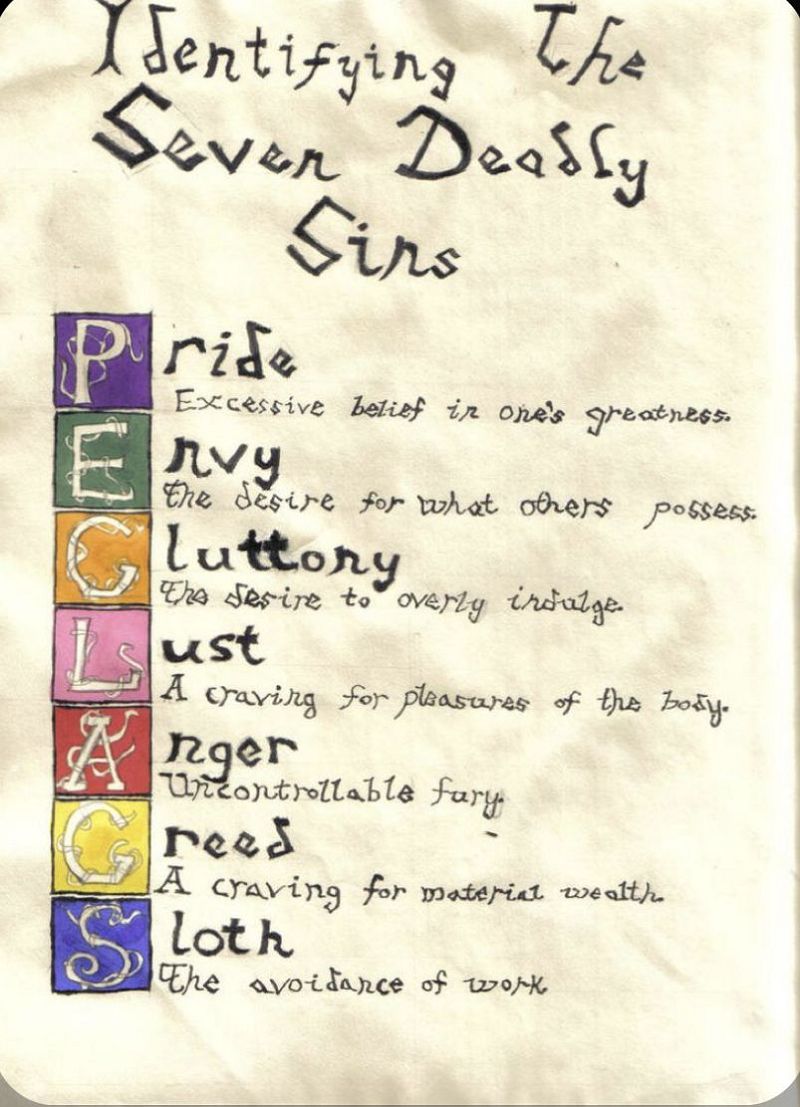 Identifying The
Seven Deadly
Sins
Pride
Excessive belief in one's greatness.
Envy
The desire for what others possess.
Gluttony
The desire to overly indulge.
Lust
A craving for pleasures of the body.
Anger
Uncontrollable fury.
Greed
A craving for material wealth.
Sloth
The avoidance of work